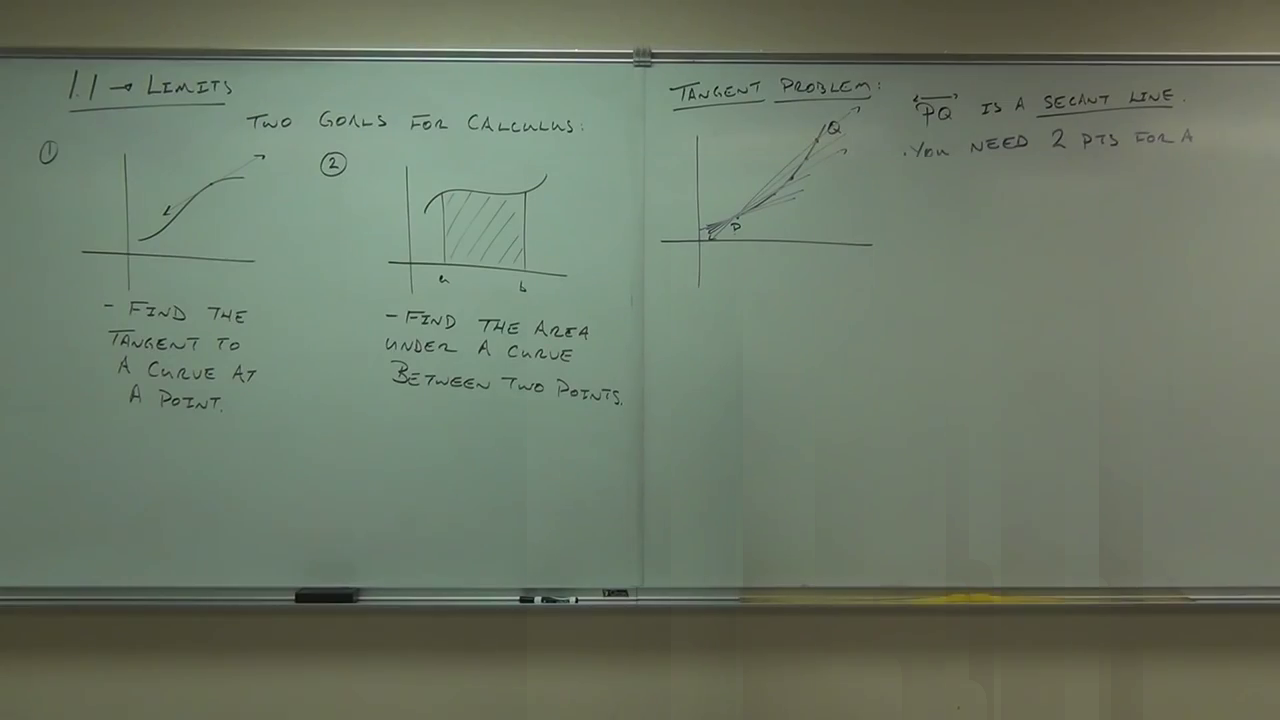 1.1 → LIMITS
TWO GOALS FOR CALCULUS:
①
②
a b
- FIND THE
TANGENT TO
A CURVE AT
A POINT.
- FIND THE AREA
UNDER A CURVE
BETWEEN TWO POINTS.
TANGENT PROBLEM:
Q
P
PQ IS A SECANT LINE.
. YOU NEED 2 PTS FOR A